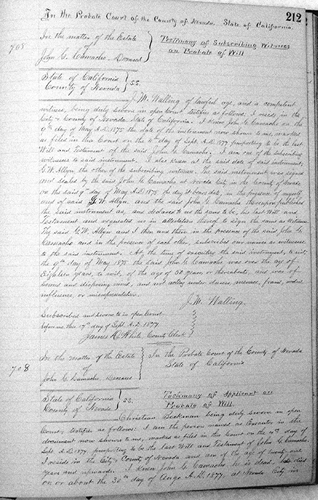 212
In the Probate Court of the County of Nevada, State of California.
708
In the matter of the Estate
of
John G. Deceased
Testimony of Subscribing Witness
on Probate of Will
State of California
County of Nevada ss.
J. M. Walling of lawful age, and a competent
witness, being duly sworn in open Court, testifies as follows. I reside in the
City & County of Nevada State of California. I knew John G. on the
9th day of May A.D. 1875 the date of the instrument now shown to me, marked
as filed in this Court on the day of Sept. A.D. 1877 purporting to be the last
Will and Testament of the said John G. I am one of the subscribing
witnesses to said instrument. I also knew at the said date of said instrument
G. W. Allgin, the other of the subscribing witnesses. The said instrument was signed
and sealed by the said John G. at Nevada City in the County of Nevada
on the said 9th day of May A.D. 1875 the day it bears date, in the presence of myself
and of said G. W. Allgin, and the said John G. thereupon published
the said instrument as, and declared to us the same to be, his last Will and
Testament and requested us in attestation thereof to sign the same as witnesses.
The said G. W. Allgin and I then and there in the presence of the said John G.
and in the presence of each other, subscribed our names as witnesses
to the said instrument. At the time of executing the said instrument, to wit,
the 9th day of May 1875 the said John G. was over the age of
eighteen years, to wit, of the age of years or thereabouts, and was of
sound and disposing mind, and not acting under duress, menace, fraud, undue
influence, or misrepresentation.
J. M. Walling.
Subscribed and sworn to in open Court
before me the day of Sept. A.D. 1877.
James White, County Clerk
708
In the matter of the Estate
of
John G. Deceased
In the Probate Court of the County of Nevada
State of California
State of California
County of Nevada ss.
Testimony of Applicant on
Probate of Will
Christian being duly sworn in open
Court, testifies as follows: I am the person named as Executor in the
document now shown to me, marked as filed in this Court on the day of
Sept. A.D. 1877, purporting to be the last Will and Testament of John G.
I reside in the City & County of Nevada and am of the age of
years and upwards. I knew John G. He is dead. He died
on or about the 30th day of A.D. 1877, at Nevada City in